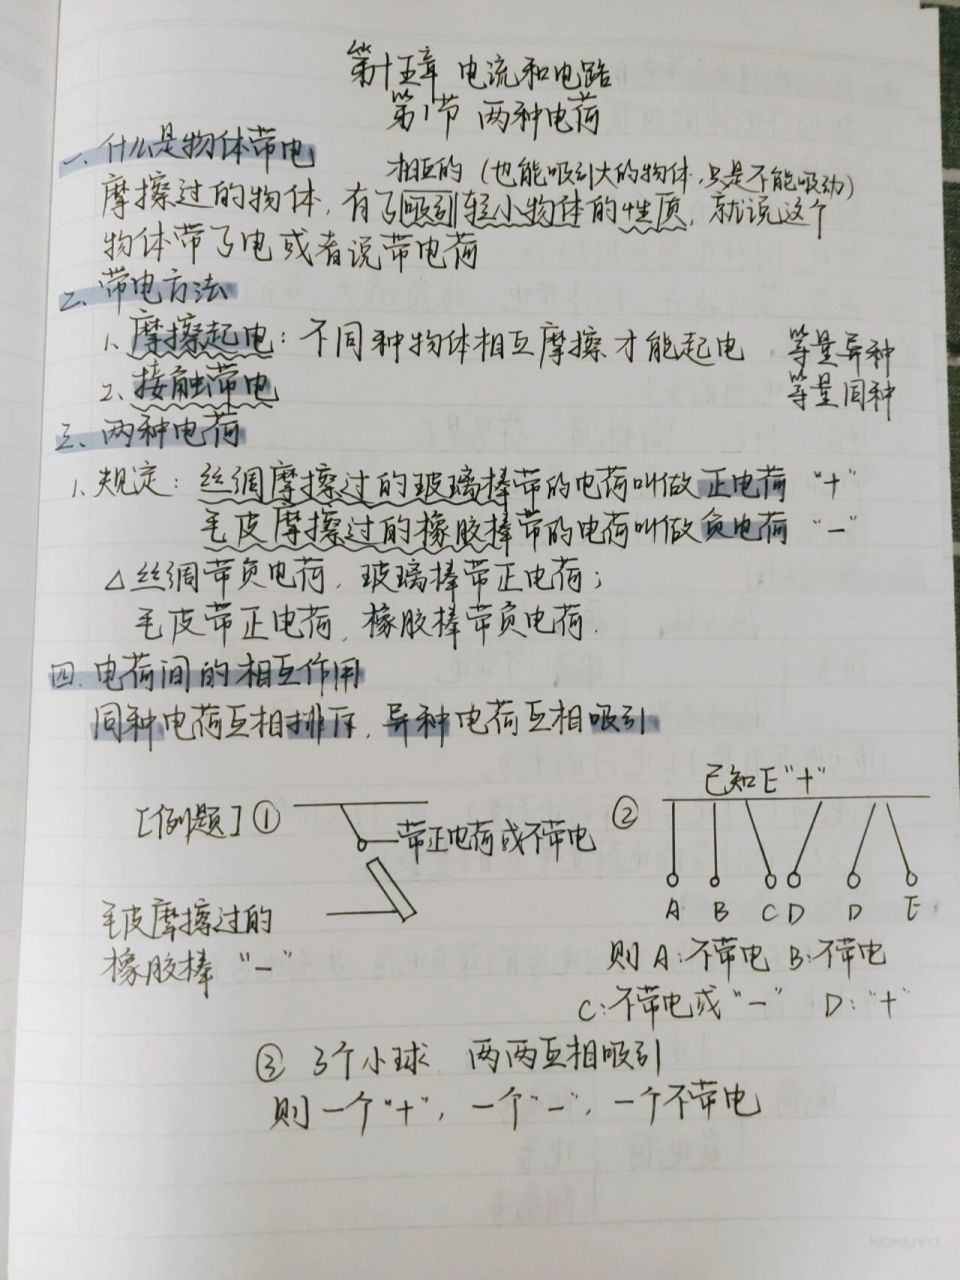 第十五章 电流和电路
第1节 两种电荷
一、什么是物体带电
相互的(也能吸引大的物体,只是不能吸动)
摩擦过的物体,有了吸引轻小物体的性质,就说这个
物体带了电或者说带电荷
二、带电方法
1、摩擦起电:不同种物体相互摩擦才能起电 等量异种
2、接触带电 等量同种
三、两种电荷
1、规定:丝绸摩擦过的玻璃棒带的电荷叫做正电荷 "+"
毛皮摩擦过的橡胶棒带的电荷叫做负电荷 "-"
△丝绸带负电荷,玻璃棒带正电荷;
毛皮带正电荷,橡胶棒带负电荷.
四.电荷间的相互作用
同种电荷互相排斥,异种电荷互相吸引.
[例题]①
带正电荷或不带电
毛皮摩擦过的
橡胶棒 "-"
② 已知E"+"
A B C D D E
则 A:不带电 B:不带电
C:不带电或"-" D:"+"
③ 3个小球 两两互相吸引
则一个"+",一个"-",一个不带电